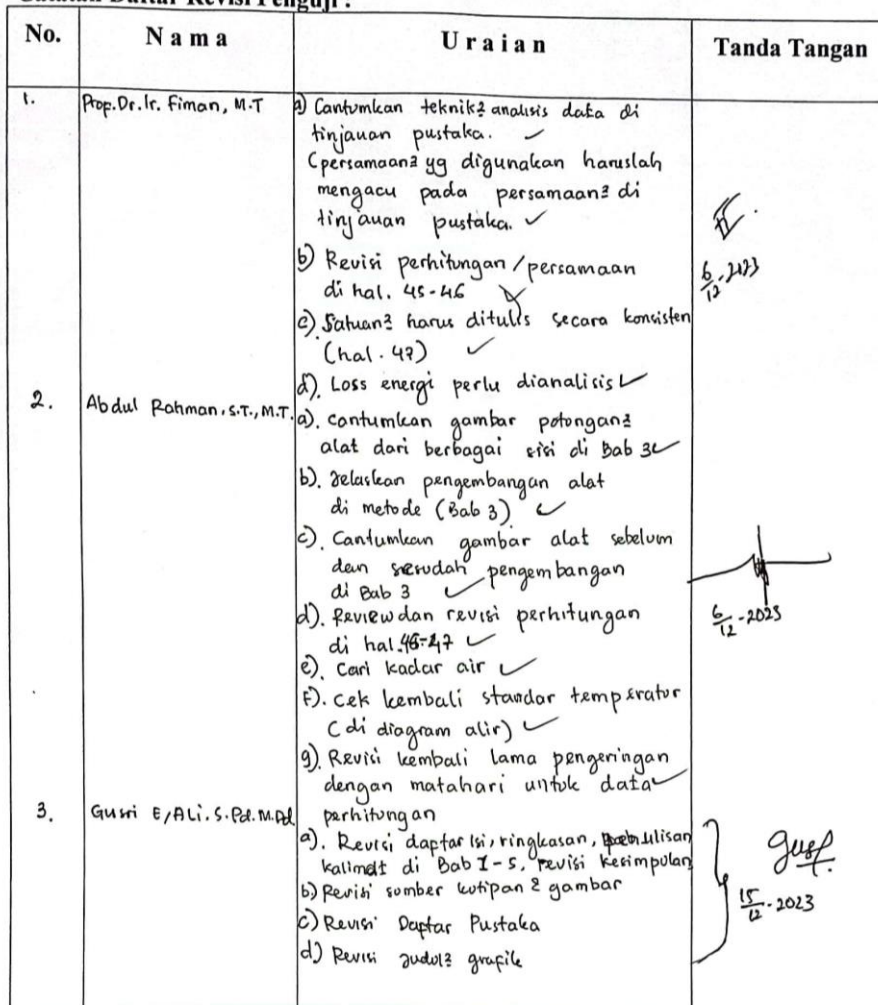 Catatan Daftar Revisi Penguji :
No. N a m a U r a i a n Tanda Tangan
1. Prop.Dr.Ir. Fiman, M.T a) Cantumkan teknik2 analisis data di
tinjauan pustaka. ✓
(persamaan2 yg digunakan haruslah
mengacu pada persamaan2 di
tinjauan pustaka. ✓
b) Revisi perhitungan/persamaan
di hal. 45-46
6/12-2023
c). Satuan2 harus ditulis secara konsisten
(hal. 47) ✓
d). Loss energi perlu dianalisis ✓
2. Abdul Rohman, S.T., M.T. a). Cantumkan gambar potongan2
alat dari berbagai sisi di Bab 3 ✓
b). Jelaskan pengembangan alat
di metode (Bab 3) ✓
c). Cantumkan gambar alat sebelum
dan sesudah pengembangan
di Bab 3 ✓
d). Review dan revisi perhitungan
di hal. 46-47 ✓
6/12-2023
e). Cari kadar air ✓
f). Cek kembali standar temperatur
(di diagram alir) ✓
g). Revisi kembali lama pengeringan
dengan matahari untuk data ✓
perhitungan
3. Gusri E, Ali. S.Pd. M.Pd a). Revisi daptar isi, ringkasan, penulisan
kalimat di Bab I-5, revisi kesimpulan
b) Revisi sumber kutipan & gambar
c) Revisi Daptar Pustaka
d) Revisi Judul2 grafik
15/12-2023